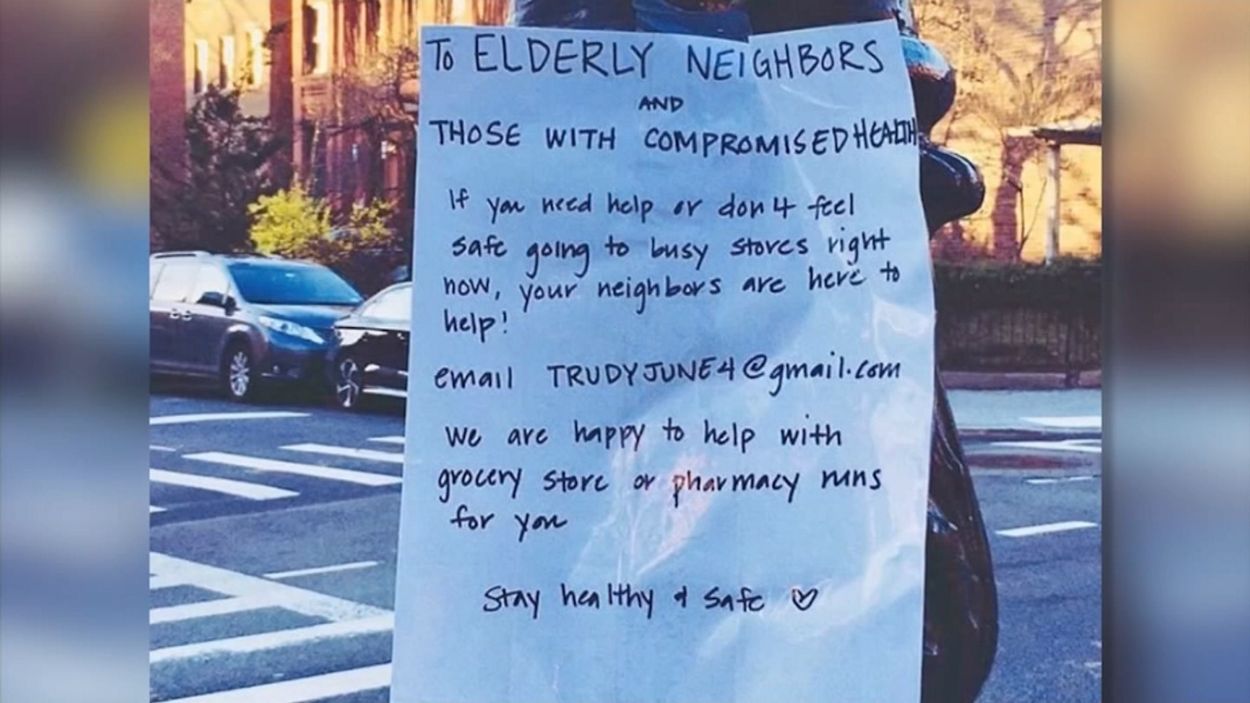 To ELDERLY NEIGHBORS
AND
THOSE WITH COMPROMISED HEALTH
If you need help or don't feel
safe going to busy stores right
now, your neighbors are here to
help!
email TRUDYJUNE4@gmail.com
We are happy to help with
grocery store or pharmacy runs
for you
Stay healthy & safe ♡